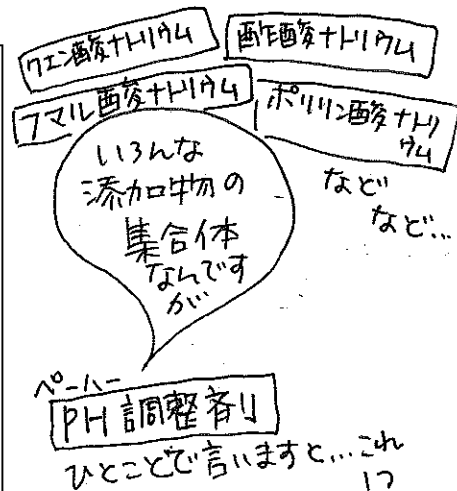 クエン酸ナトリウム
酢酸ナトリウム
フマル酸ナトリウム
ポリリン酸ナトリ
ウム
など
など…
いろんな
添加物の
集合体
なんです
が
ペーハー
PH調整剤
ひとことで言いますと…これ